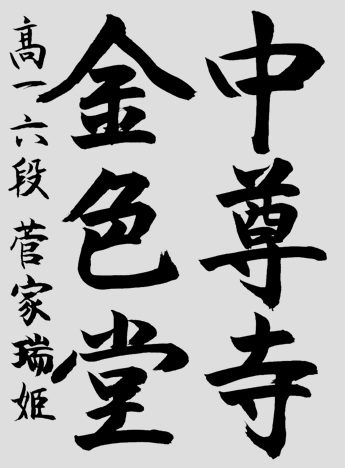 中尊寺
金色堂
高一六段 菅家瑞姫